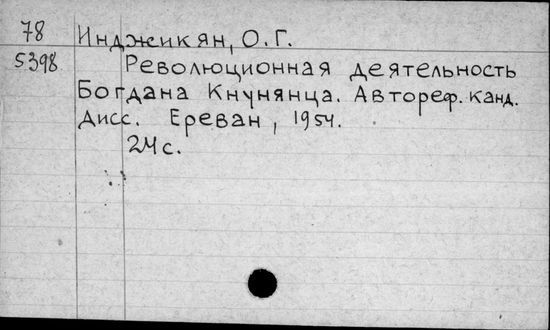 78 Инджикян, О.Г.
5398 Революционная деятельность
Богдана Кнунянца. Автореф. канд.
дисс. Ереван, 1954.
24 с.